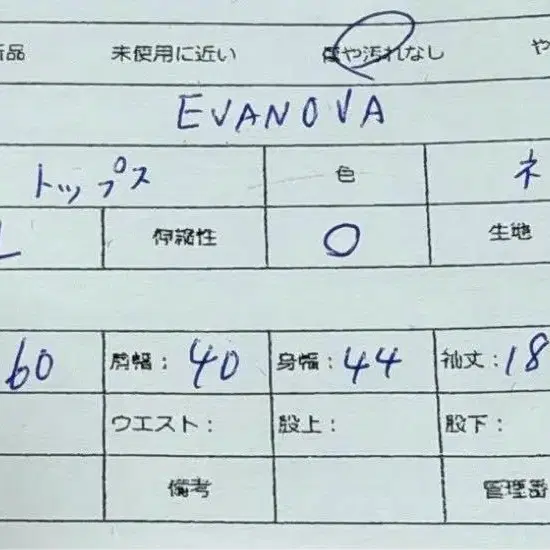 新品 未使用に近い 傷や汚れなし や
EVANOVA
トップス 色 ネ
L 伸縮性 ○ 生地
60 肩幅: 40 身幅: 44 袖丈: 18
ウエスト: 股上: 股下:
備考 管理番